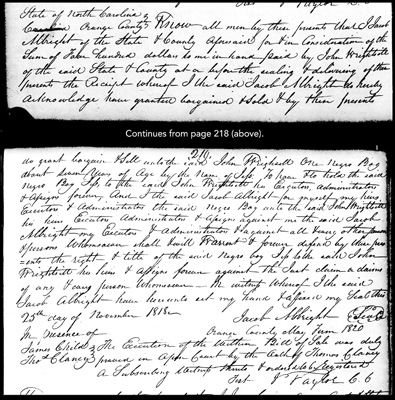 State of North Carolina }
Orange County } Know all men by these presents that I Jacob
Albright of the State & County Aforesaid for & in Consideration of the
Sum of Four hundred dollars to me in hand paid by John Wrightsell
of the said State & County at or before the sealing & delivering of these
presents the Receipt whereof I the said Jacob Albright do hereby
Acknowledge have granted bargained & Sold & by these presents
Continues from page 218 (above).
219
do grant bargain & Sell unto the said John Wrightsell One Negro Boy
about Seven Years of Age by the Name of To have & to hold the said
Negro Boy to the said John Wrightsell his Executors Administrators
& Assigns forever And I the said Jacob Albright for myself my heirs
Executors & Administrators the said Negro Boy unto the said John Wrightsell
his heirs Executors Administrators & Assigns against me the said Jacob
Albright my Executors & Administrators & against all & every other person
& persons Whomsoever shall & will Warrant & forever defend by these pres
=ents the right & title of the said negro boy to the said John
Wrightsell his heirs & Assigns forever against the Just claim or claims
of any & every person Whomsoever — In witness whereof I the said
Jacob Albright have hereunto set my hand & affixed my Seal this
25th day of November 1818 —
Jacob Albright (Seal)
In presence of Orange County May Term 1820
James Child } The Execution of the Within Bill of Sale was duly
Thos Clancy } proved in Open Court by the Oath of Thomas Clancy
A Subscribing Witness thereto & ordered to be Registered
Test J Taylor C.C